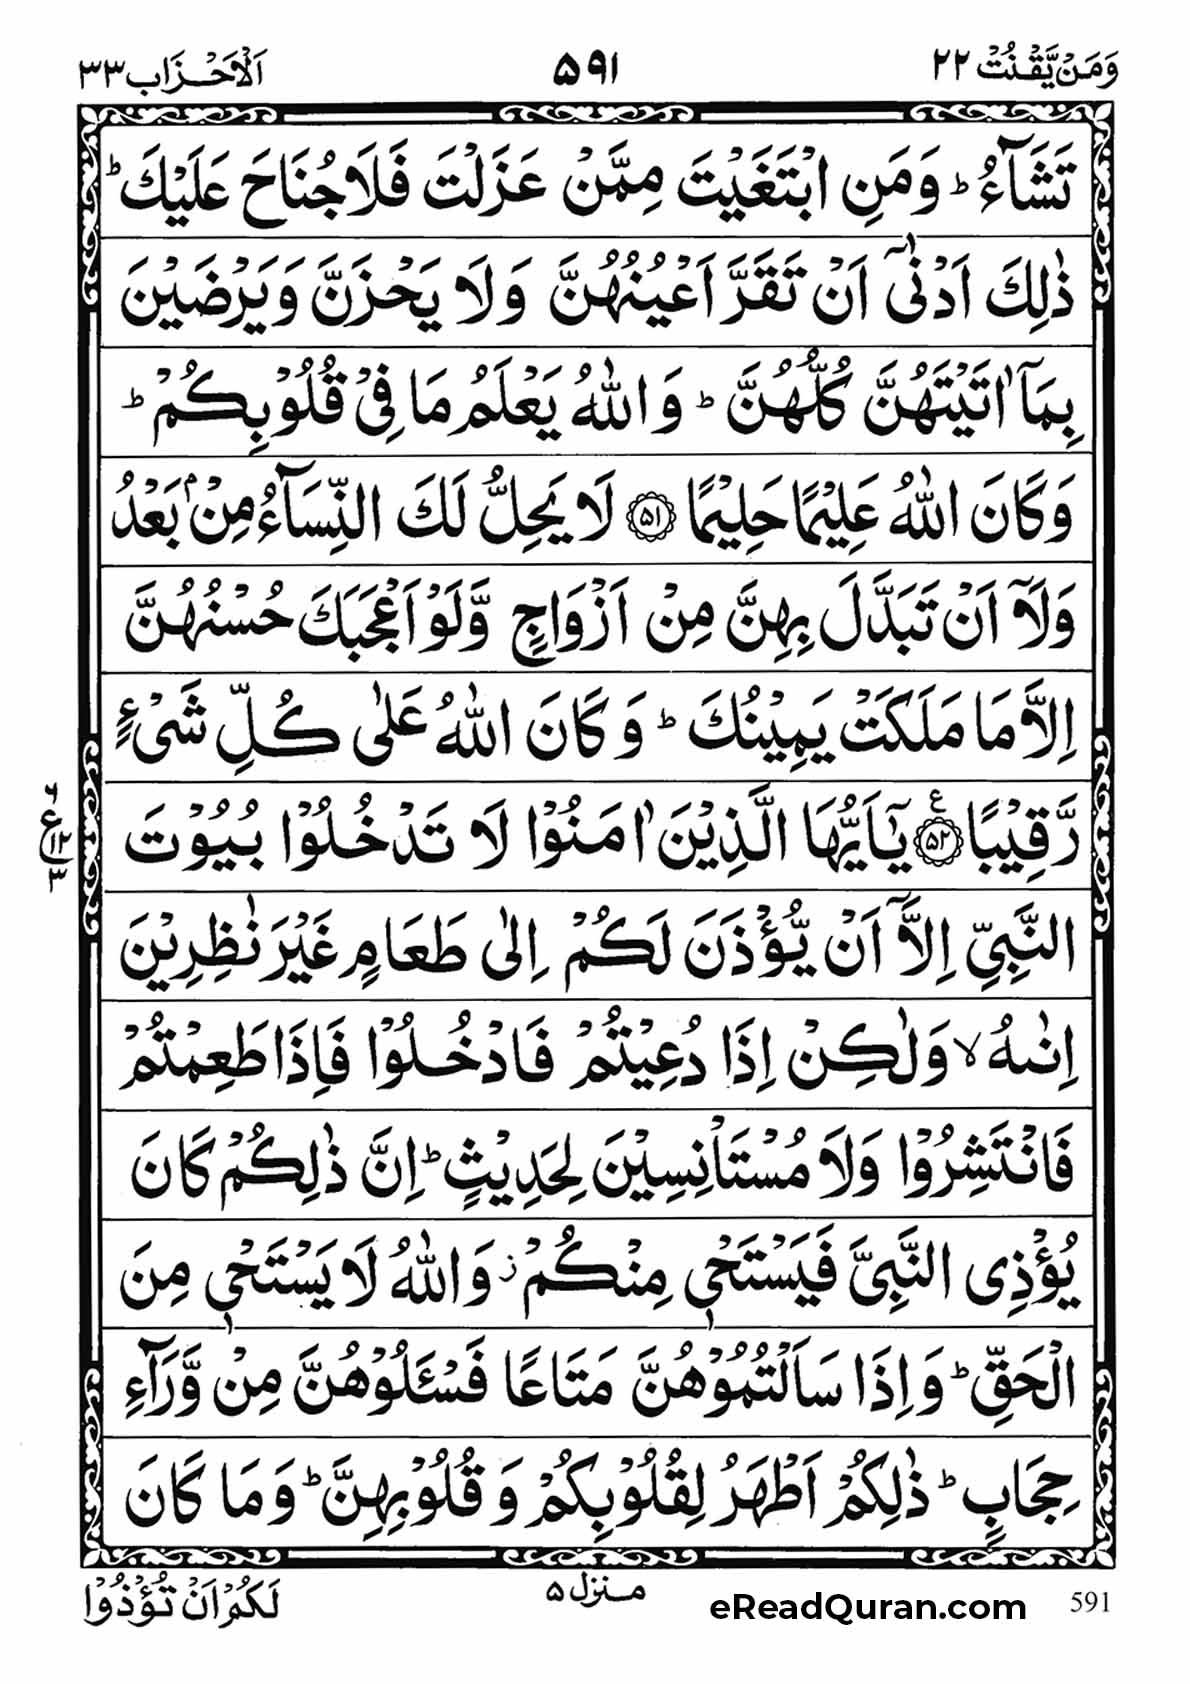 وَمَنْ يَّقْنُتْ ٢٢
٥٩١
اَلْاَحْزَاب ٣٣
تَشَآءُ ؕ وَمَنِ ابْتَغَيْتَ مِمَّنْ عَزَلْتَ فَلَا جُنَاحَ عَلَيْكَ ؕ
ذٰلِكَ اَدْنٰۤى اَنْ تَقَرَّ اَعْيُنُهُنَّ وَلَا يَحْزَنَّ وَيَرْضَيْنَ
بِمَاۤ اٰتَيْتَهُنَّ كُلُّهُنَّ ؕ وَاللّٰهُ يَعْلَمُ مَا فِيْ قُلُوْبِكُمْ ؕ
وَكَانَ اللّٰهُ عَلِيْمًا حَلِيْمًا ﴿٥١﴾ لَا يَحِلُّ لَكَ النِّسَآءُ مِنْۢ بَعْدُ
وَلَاۤ اَنْ تَبَدَّلَ بِهِنَّ مِنْ اَزْوَاجٍ وَّلَوْ اَعْجَبَكَ حُسْنُهُنَّ
اِلَّا مَا مَلَكَتْ يَمِيْنُكَ ؕ وَكَانَ اللّٰهُ عَلٰى كُلِّ شَيْءٍ
رَّقِيْبًا ﴿٥٢﴾ ع يٰۤاَيُّهَا الَّذِيْنَ اٰمَنُوْا لَا تَدْخُلُوْا بُيُوْتَ
ع ٦ ١٢ ٣
النَّبِيِّ اِلَّاۤ اَنْ يُّؤْذَنَ لَكُمْ اِلٰى طَعَامٍ غَيْرَ نٰظِرِيْنَ
اِنٰىهُ ۙ وَلٰكِنْ اِذَا دُعِيْتُمْ فَادْخُلُوْا فَاِذَا طَعِمْتُمْ
فَانْتَشِرُوْا وَلَا مُسْتَاْنِسِيْنَ لِحَدِيْثٍ ؕ اِنَّ ذٰلِكُمْ كَانَ
يُؤْذِى النَّبِيَّ فَيَسْتَحْيٖ مِنْكُمْ ؗ وَاللّٰهُ لَا يَسْتَحْيٖ مِنَ
الْحَقِّ ؕ وَاِذَا سَاَلْتُمُوْهُنَّ مَتَاعًا فَسْـَٔلُوْهُنَّ مِنْ وَّرَآءِ
حِجَابٍ ؕ ذٰلِكُمْ اَطْهَرُ لِقُلُوْبِكُمْ وَقُلُوْبِهِنَّ ؕ وَمَا كَانَ
لَكُمْ اَنْ تُؤْذُوْا
منزل ٥
eReadQuran.com
591